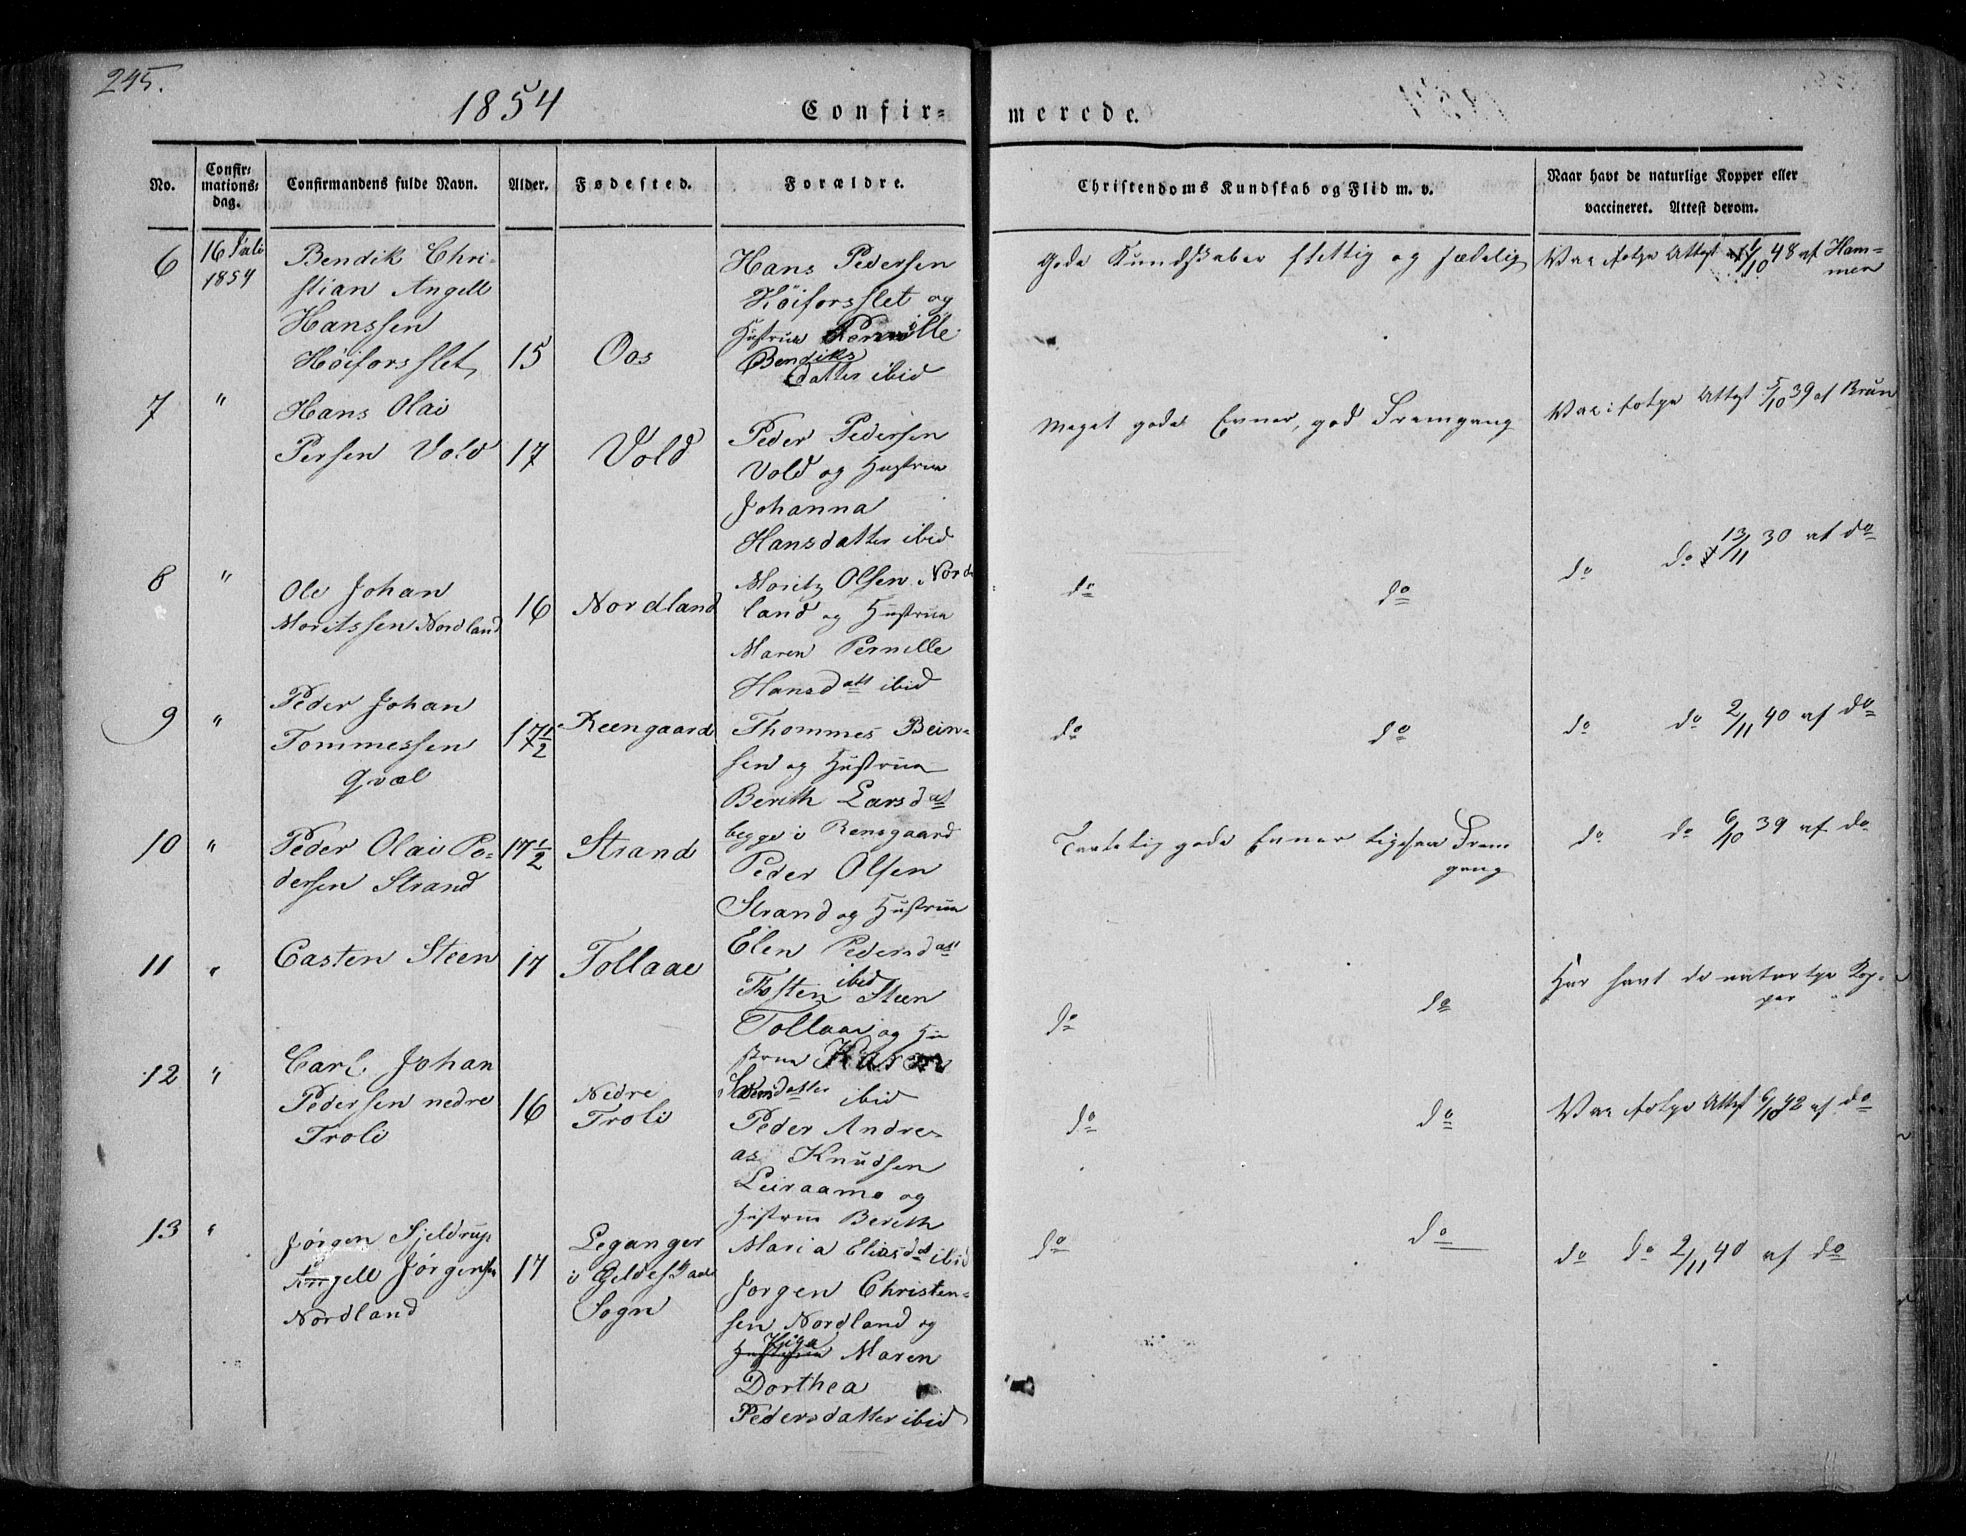 245.
1854
Confir- merede.
No.
Confir-
mations-
dag.
Confirmandens fulde Navn.
Alder.
Fødested.
Forældre.
Christendoms Kundskab og Flid m. v.
Naar havt de naturlige Kopper eller
vaccineret. Attest derom.
6
16 Juli
1854
Bendik Chri-
stian Angell
Hanssen
Høiforsslet
15
Oos
Hans Pedersen
Høiforsslet og
Hustrue Pernille
Bendiks
datter ibid
Gode Kundskaber flittig og sædelig
Vac ifølge Attest 1/10 48 af Ham-
mer
7
"
Hans Olai
Persen Vold
17
Vold
Peder Pedersen
Vold og Hustrue
Johanna
Hansdatter ibid
Meget gode Evner, god Fremgang
Vac ifølge Attest 5/10 39 af Brun
8
"
Ole Johan
Moritssen Nordland
16
Nordland
Moritz Olsen Nord
land og Hustrue
Maren Pernille
Hansdatt ibid
do
do
do do 13/11 30 af do
9
"
Peder Johan
Tommessen
Qvæl
17 1/2
Reengaard
Thommes Bein-
sen og Hustrue
Berith Larsdat
begge i Rensgaard
do
do
do do 2/11 40 af do
10
"
Peder Olai Pe-
dersen Strand
17 1/2
Strand
Peder Olsen
Strand og Hustrue
Elen Pedersdat
ibid
Taalelig gode Evner ligesaa Frem
gang
do do 6/10 39 af do
11
"
Casten Steen
17
Tollaae
Steen
Tollaae og Hu
strue Karen
datter ibid
do
do
Har havt de naturlge Kop-
per
12
"
Carl Johan
Pedersen nedre
Troli
16
Nedre
Troli
Peder Andre-
as Knudsen
Leiraamo og
Hustrue Berith
Maria Eliasdat ibid
do
do
Vac ifølge Attest 6/10 42 af do
13
"
Jørgen Sjeldrup
Angell Jørgensen
Nordland
17
Leganger
i
Sogn
Jørgen Christen-
sen Nordland og
Pige
Hustrue Maren
Dorthea
Pedersdatter ibid
do
do
do do 2/11 40 af do